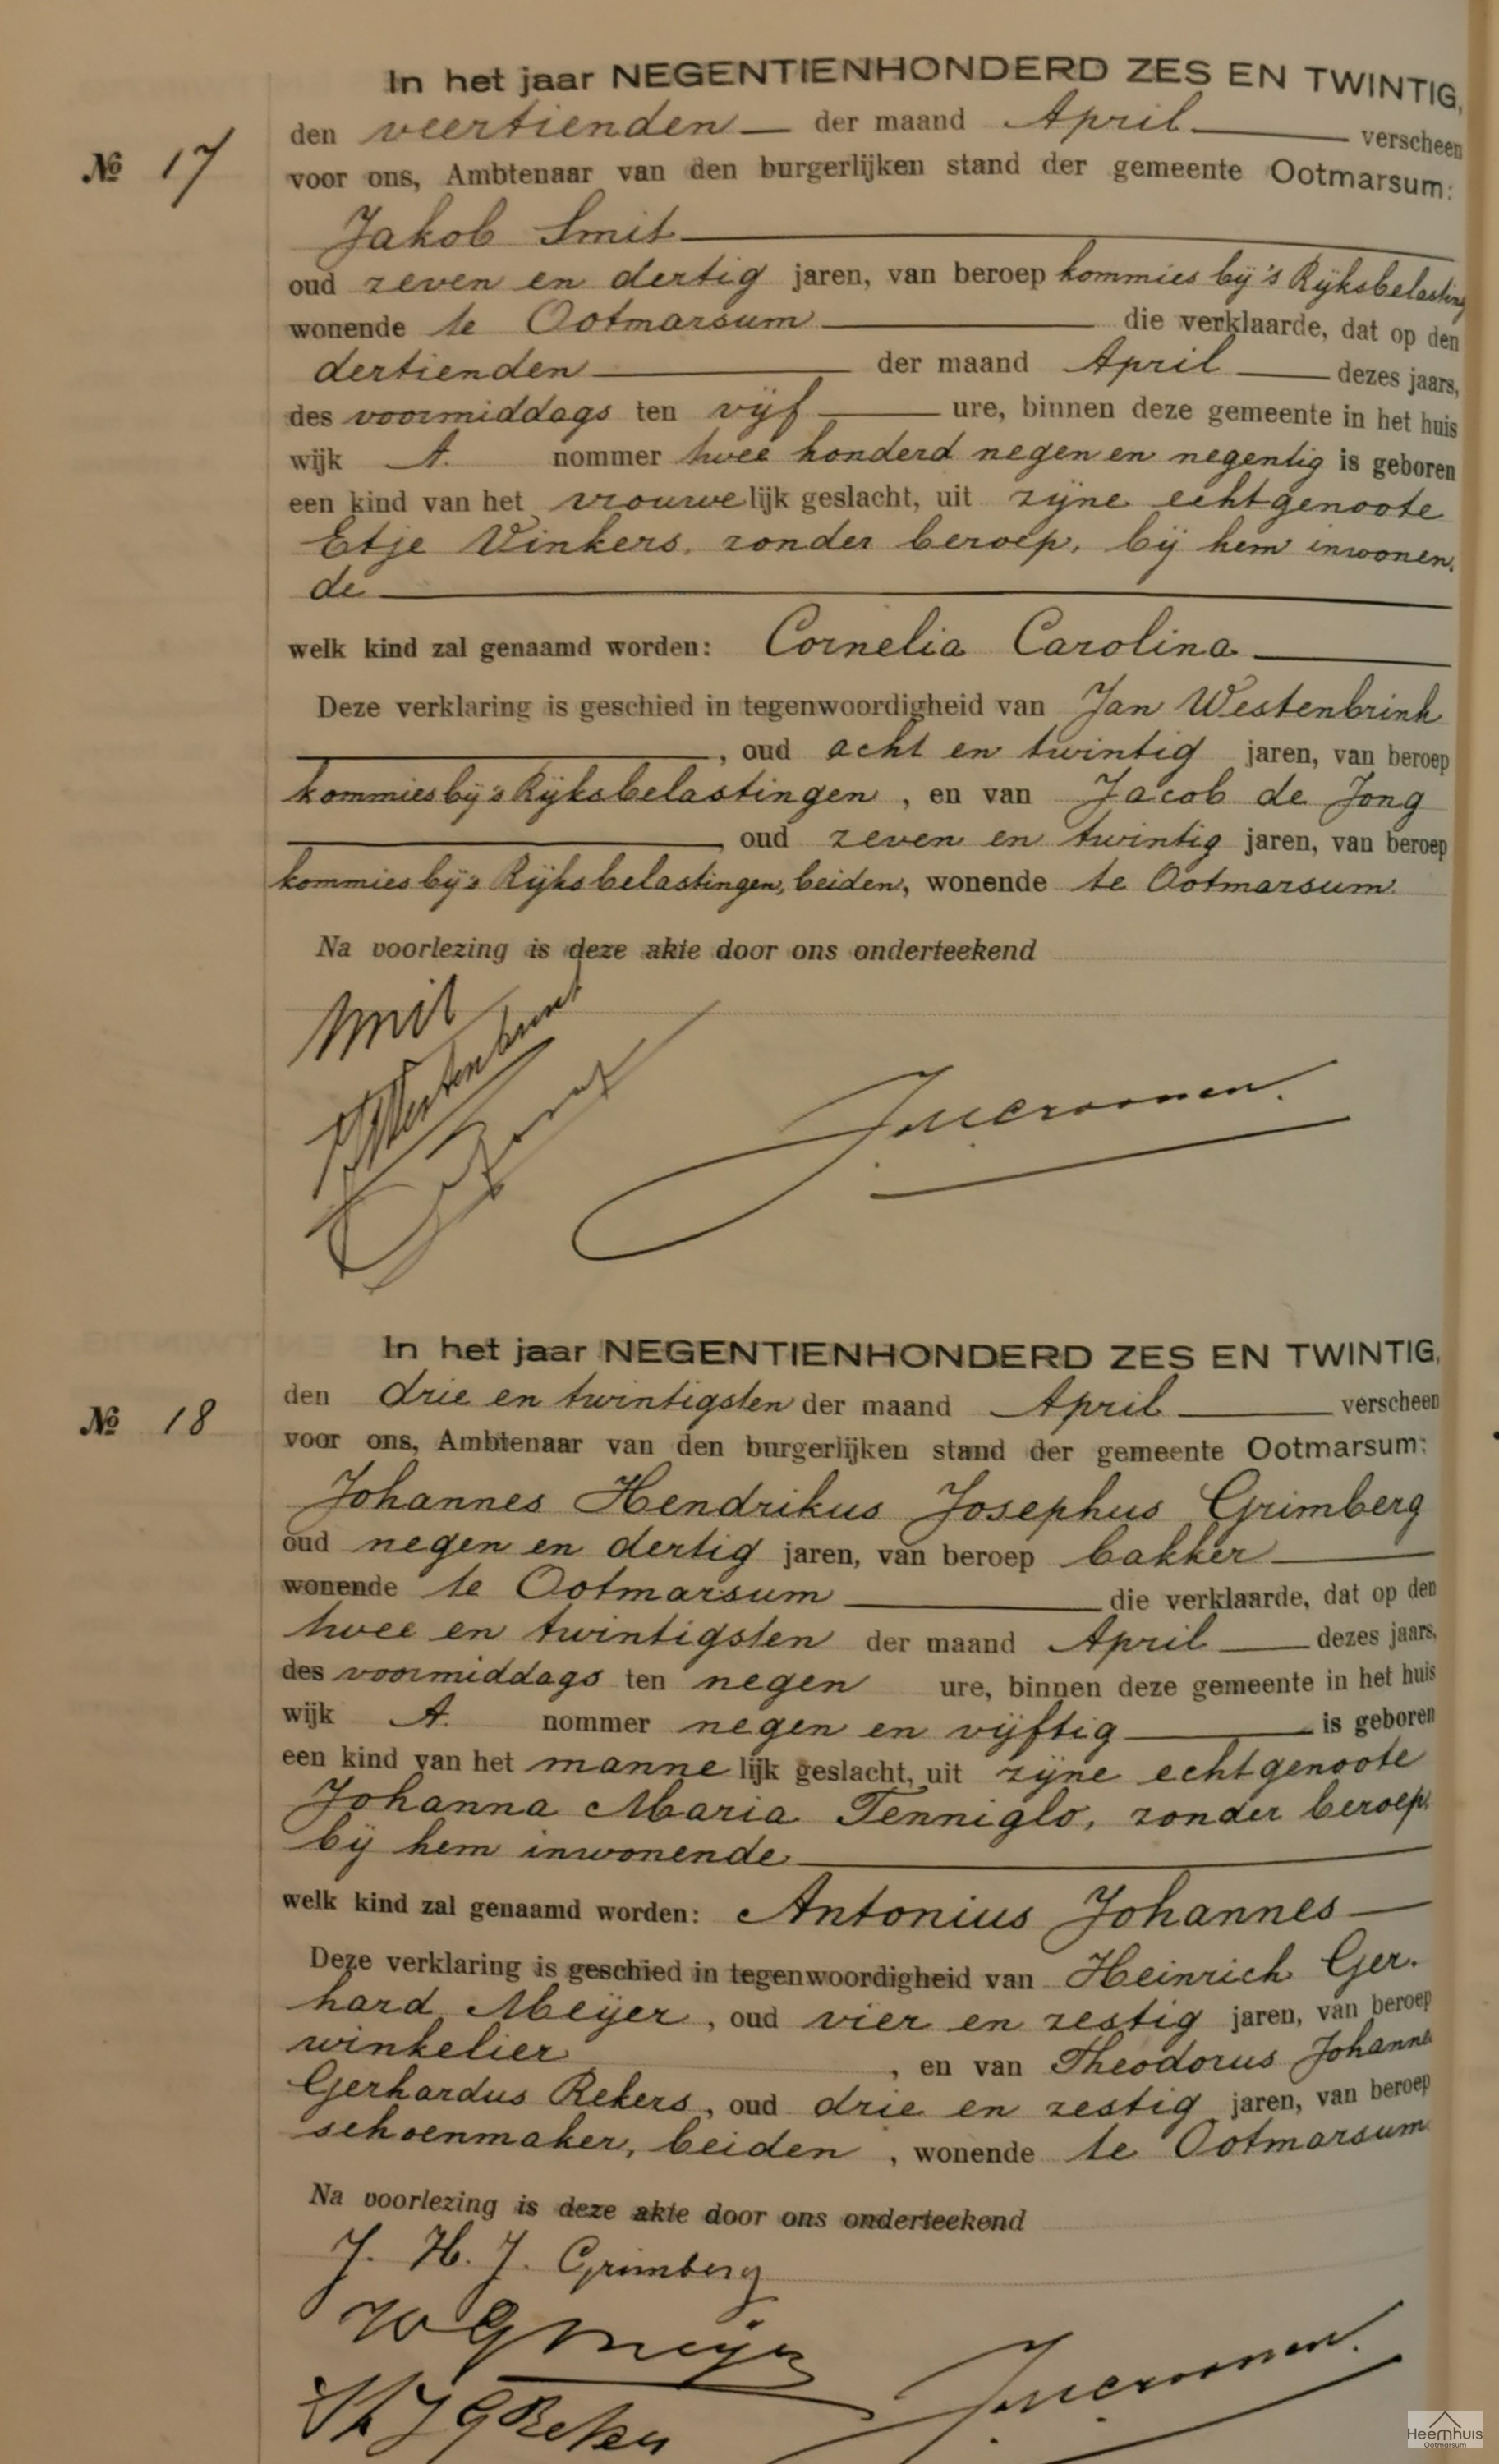 In het jaar NEGENTIENHONDERD ZES EN TWINTIG,
den veertienden der maand April verscheen
№ 17
voor ons, Ambtenaar van den burgerlijken stand der gemeente Ootmarsum:
Jakob Smit
oud zeven en dertig jaren, van beroep kommies bij 's Rijksbelasting
wonende te Ootmarsum die verklaarde, dat op den
dertienden der maand April dezes jaars,
des voormiddags ten vijf ure, binnen deze gemeente in het huis
wijk A. nommer twee honderd negen en negentig is geboren
een kind van het vrouwelijk geslacht, uit zijne echtgenoote
Etje Vinkers, zonder beroep, bij hem inwonen.
de
welk kind zal genaamd worden: Cornelia Carolina
Deze verklaring is geschied in tegenwoordigheid van Jan Westenbrink
, oud acht en twintig jaren, van beroep
kommies bij 's Rijksbelastingen, en van Jacob de Jong
, oud zeven en twintig jaren, van beroep
kommies bij 's Rijksbelastingen, beiden, wonende te Ootmarsum.
Na voorlezing is deze akte door ons onderteekend
Smit
In het jaar NEGENTIENHONDERD ZES EN TWINTIG,
den drie en twintigsten der maand April verscheen
№ 18
voor ons, Ambtenaar van den burgerlijken stand der gemeente Ootmarsum:
Johannes Hendrikus Josephus Grimberg
oud negen en dertig jaren, van beroep bakker
wonende te Ootmarsum die verklaarde, dat op den
twee en twintigsten der maand April dezes jaars,
des voormiddags ten negen ure, binnen deze gemeente in het huis
wijk A. nommer negen en vijftig is geboren
een kind van het mannelijk geslacht, uit zijne echtgenoote
Johanna Maria Tenniglo, zonder beroep,
bij hem inwonende
welk kind zal genaamd worden: Antonius Johannes
Deze verklaring is geschied in tegenwoordigheid van Heinrich Ger.
hard Meijer, oud vier en zestig jaren, van beroep
winkelier, en van Theodorus Johannes
Gerhardus Rekers, oud drie en zestig jaren, van beroep
schoenmaker, beiden, wonende te Ootmarsum
Na voorlezing is deze akte door ons onderteekend
J. H. J. Grimberg
Heemhuis
Ootmarsum